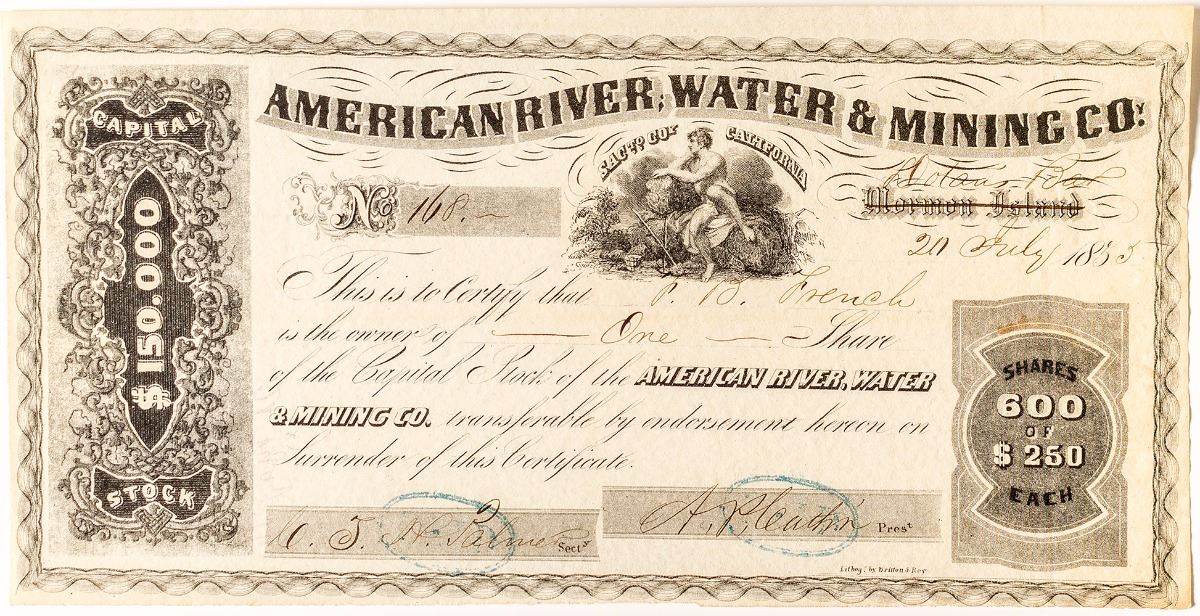 AMERICAN RIVER, WATER & MINING COY.
SACTO. COY. CALIFORNIA
CAPITAL
$150.000
STOCK
No 168.
Mormon Island
20 July 1855
This is to Certify that F. B. French
is the owner of One Share
of the Capital Stock of the AMERICAN RIVER, WATER
& MINING CO. transferable by endorsement hereon on
Surrender of this Certificate.
SHARES
600
OF
$250
EACH
C. T. H. Palmer Secty
A. P. Catlin Prest
Lithog. by Britton & Rey